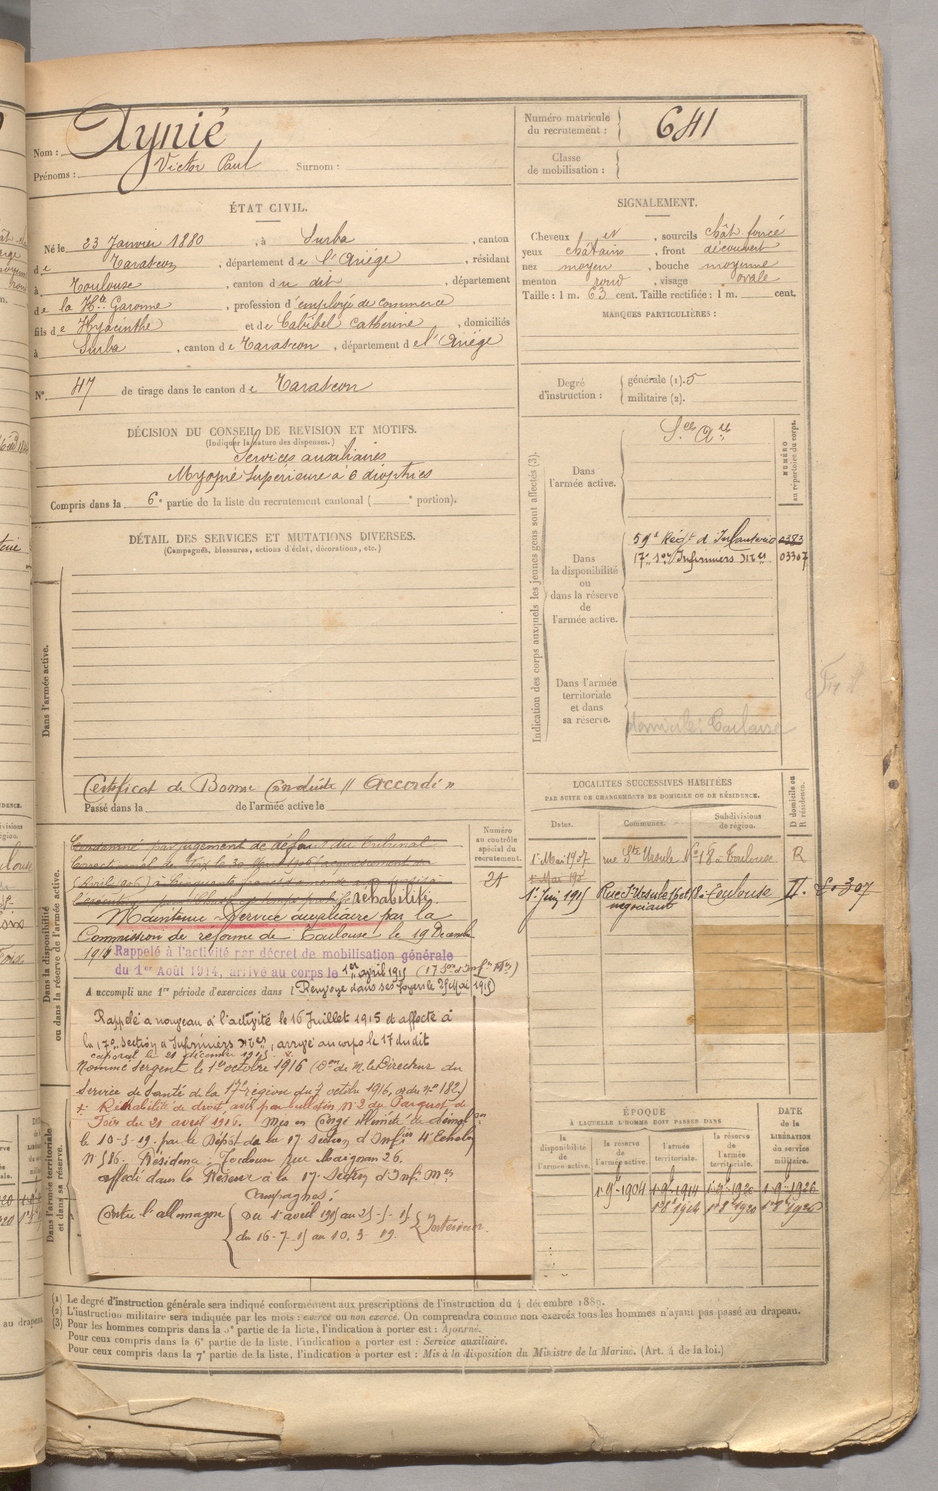 Nom : Aynié
Prénoms : Victor Paul Surnom :
Numéro matricule du recrutement : 641
Classe de mobilisation :
ÉTAT CIVIL.
Né le 23 Janvier 1880, à Surba, canton
de Tarascon, département de l'Ariége, résidant
à Toulouse, canton du dit, département
de la Hte Garonne, profession d'employé de commerce
fils de Hyacinthe et de Cabibel Catherine, domiciliés
à Surba, canton de Tarascon, département de l'Ariége
N° 47 de tirage dans le canton de Tarascon
SIGNALEMENT.
Cheveux et, sourcils chât foncé
yeux châtains, front découvert
nez moyen, bouche moyenne
menton rond, visage ovale
Taille : 1 m. 63 cent. Taille rectifiée : 1 m. cent.
MARQUES PARTICULIÈRES :
Degré d'instruction : générale (1). 5
militaire (2).
DÉCISION DU CONSEIL DE REVISION ET MOTIFS.
(Indiquer la nature des dispenses.)
Services auxiliaires
Myopie supérieure à 6 dioptries
Compris dans la 6e partie de la liste du recrutement cantonal ( e portion).
DÉTAIL DES SERVICES ET MUTATIONS DIVERSES.
(Campagnes, blessures, actions d'éclat, décorations, etc.)
Dans l'armée active.
Certificat de Bonne Conduite " Accordé "
Passé dans la de l'armée active le
Indication des corps auxquels les jeunes gens sont affectés (3).
NUMÉRO au répertoire du corps.
Dans l'armée active.
Dans la disponibilité ou dans la réserve de l'armée active.
59e Régt d'Infanterie 0383
17e Son Infirmiers Mres 03307
Dans l'armée territoriale et dans sa réserve.
domicile : Toulouse
LOCALITÉS SUCCESSIVES HABITÉES
PAR SUITE DE CHANGEMENTS DE DOMICILE OU DE RÉSIDENCE.
Dates. Communes. Subdivisions de région. D domicile ou R résidence.
1er Mai 1907 rue Ste Ursule No 18 à Toulouse R
1er Juin 1915 Rue St Ursule 16 et 18 Toulouse
négociant
Dans la disponibilité ou dans la réserve de l'armée active.
Numéro au contrôle spécial du recrutement.
21
Condamné par jugement de défaut du Tribunal
Correctionnel de Foix le 30 Mars 1906
réhabilité
Maintenu Service auxiliaire par la
Commission de réforme de Toulouse le 19 Décembre
1914 Rappelé à l'activité par décret de mobilisation générale
du 1er Août 1914, arrivé au corps le 1er avril 1915 (17 Son d'Infirs Mres)
A accompli une 1re période d'exercices dans l Renvoyé dans ses foyers le 25 Mai 1915
Rappelé à nouveau à l'activité le 16 Juillet 1915 et affecté à
la 17e Section d'Infirmiers Mres, arrivé au corps le 17 du dit
caporal le 21 décembre 1915
Nommé sergent le 1er octobre 1916 (Don de M. le Directeur du
Service de Santé de la 17e région du 7 octobre 1916, no 182)
+ Réhabilité de droit, avis par bulletin No 2 du Parquet de
Foix du 21 avril 1916. Mis en Congé illimité de démob on
le 10-3-19. par le Dépôt de la 17 section d'Infiers 4e Echelon
No 586. Résidence : Toulouse Rue Maignan 26.
affecté dans la Réserve à la 17e Section d'Infirs Mres
Campagnes :
Contre l'allemagne du 1er avril 1915 au 25-5-15
du 16-7-15 au 10.3-19. Intérieur
Dans l'armée territoriale et dans sa réserve.
ÉPOQUE
À LAQUELLE L'HOMME DOIT PASSER DANS
DATE de la LIBÉRATION du service militaire.
la disponibilité de l'armée active. la réserve de l'armée active. l'armée territoriale. la réserve de l'armée territoriale.
1er 9bre 1904 1er 9bre 1914 1er 9bre 1920 1er 9bre 1926
1er 8bre 1914 1er 8bre 1920 1er 8bre 1926
(1) Le degré d'instruction générale sera indiqué conformément aux prescriptions de l'instruction du 4 décembre 1889.
(2) L'instruction militaire sera indiquée par les mots : exercé ou non exercé. On comprendra comme non exercés tous les hommes n'ayant pas passé au drapeau.
(3) Pour les hommes compris dans la 5e partie de la liste, l'indication à porter est : Ajourné.
Pour ceux compris dans la 6e partie de la liste, l'indication à porter est : Service auxiliaire.
Pour ceux compris dans la 7e partie de la liste, l'indication à porter est : Mis à la disposition du Ministre de la Marine. (Art. 4 de la loi.)